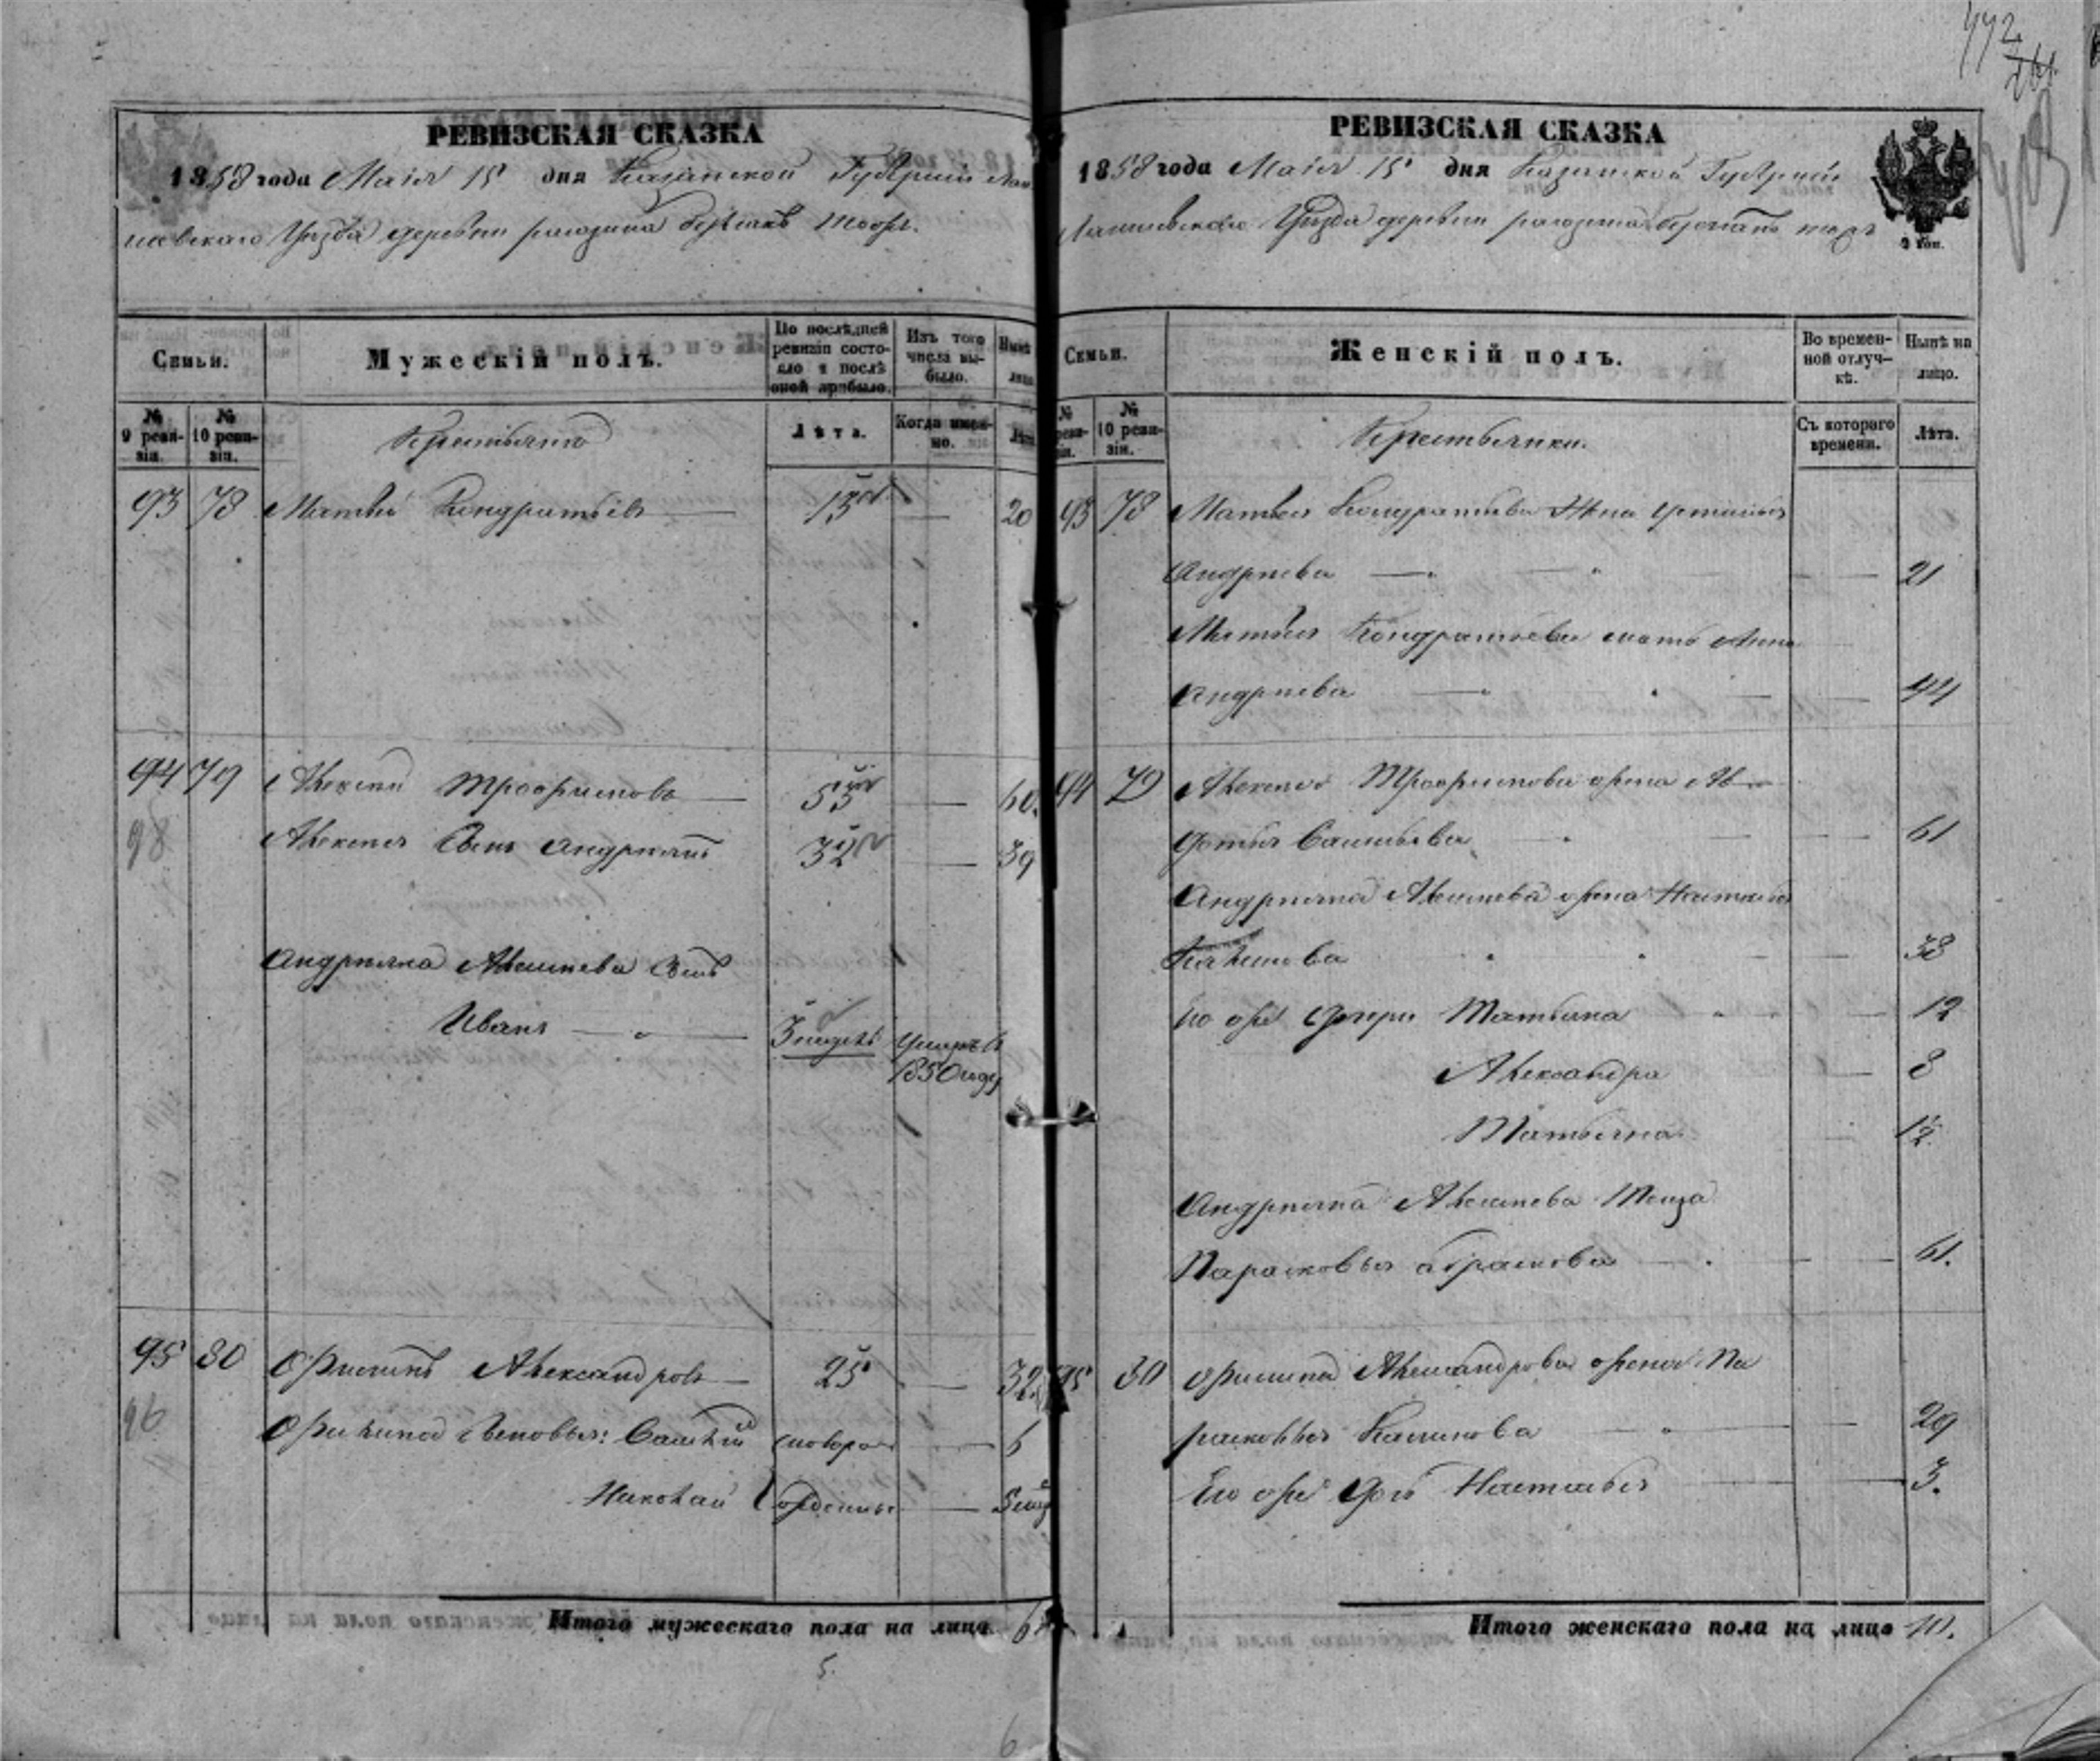 РЕВИЗСКАЯ СКАЗКА
1858 года Маія 15 дня Казанской Губерніи Лаи
шевскаго Уѣзда деревни
Семьи.
Мужескій полъ.
По послѣдней ревизіи состояло и послѣ оной прибыло.
Изъ того числа выбыло.
Нынѣ на лицо
№ 9 ревизіи.
№ 10 ревизіи.
Крестьяне
Лѣта.
Когда именно.
Лѣта
93 78 Матвей Кондратьевъ 13 20
94 79 Алексей Трофимовъ 53 60.
98 Алексея Сынъ Андриянъ 32 39
Андрияна Алексеева Сынъ
Иванъ 3 недель Умеръ въ
1850 году
95 80 Филипъ Александровъ 25 32
96 Филипа Сыновья: Василий 6
Николай
Итого мужескаго пола на лицо 6
5.
6
442
РЕВИЗСКАЯ СКАЗКА
1858 года Маія 15 дня Казанской Губерніи
Лаишевскаго Уѣзда деревни
Семьи.
Женскій полъ.
Во временной отлучкѣ.
Нынѣ на лицо.
№ ревизіи.
№ 10 ревизіи.
Крестьянки.
Съ котораго времени.
Лѣта.
93 78 Матвея Кондратьева Жена Устинья
Андреева 21
Матвея Кондратьева мать Анна
Андреева 44
94 79 Алексея Трофимова жена Ав
дотья Савельева 61
Андрияна Алексеева жена Наталья
38
Его же дочери Татьяна 12
Александра 8
Татьяна
Андрияна Алексеева Теща
Парасковья Абрамова 61.
95 80 Филипа Александрова жена Па
расковья 29
Его же дочь Наталья 3.
Итого женскаго пола на лицо 10.